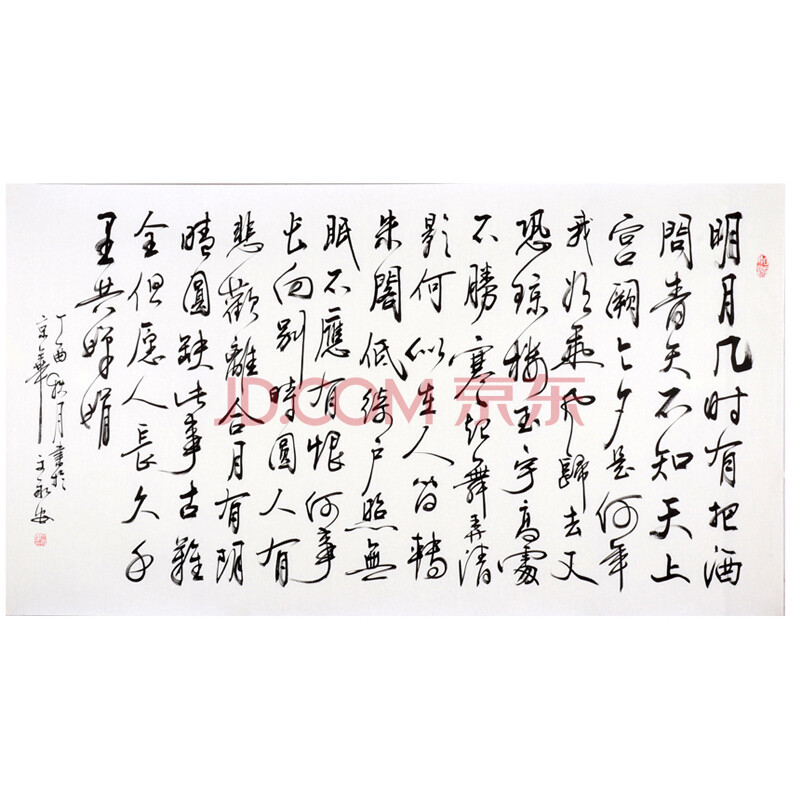 明月几时有把酒
問青天不知天上
宫闕今夕是何年
我欲乘风歸去又
恐琼楼玉宇高處
不勝寒起舞弄清
影何似在人间轉
朱閣低绮户照無
眠不應有恨何事
长向别時圓人有
悲歡離合月有阴
晴圓缺此事古難
全但愿人長久千
里共婵娟
丁酉秋月書於
京華
JD.COM 京东